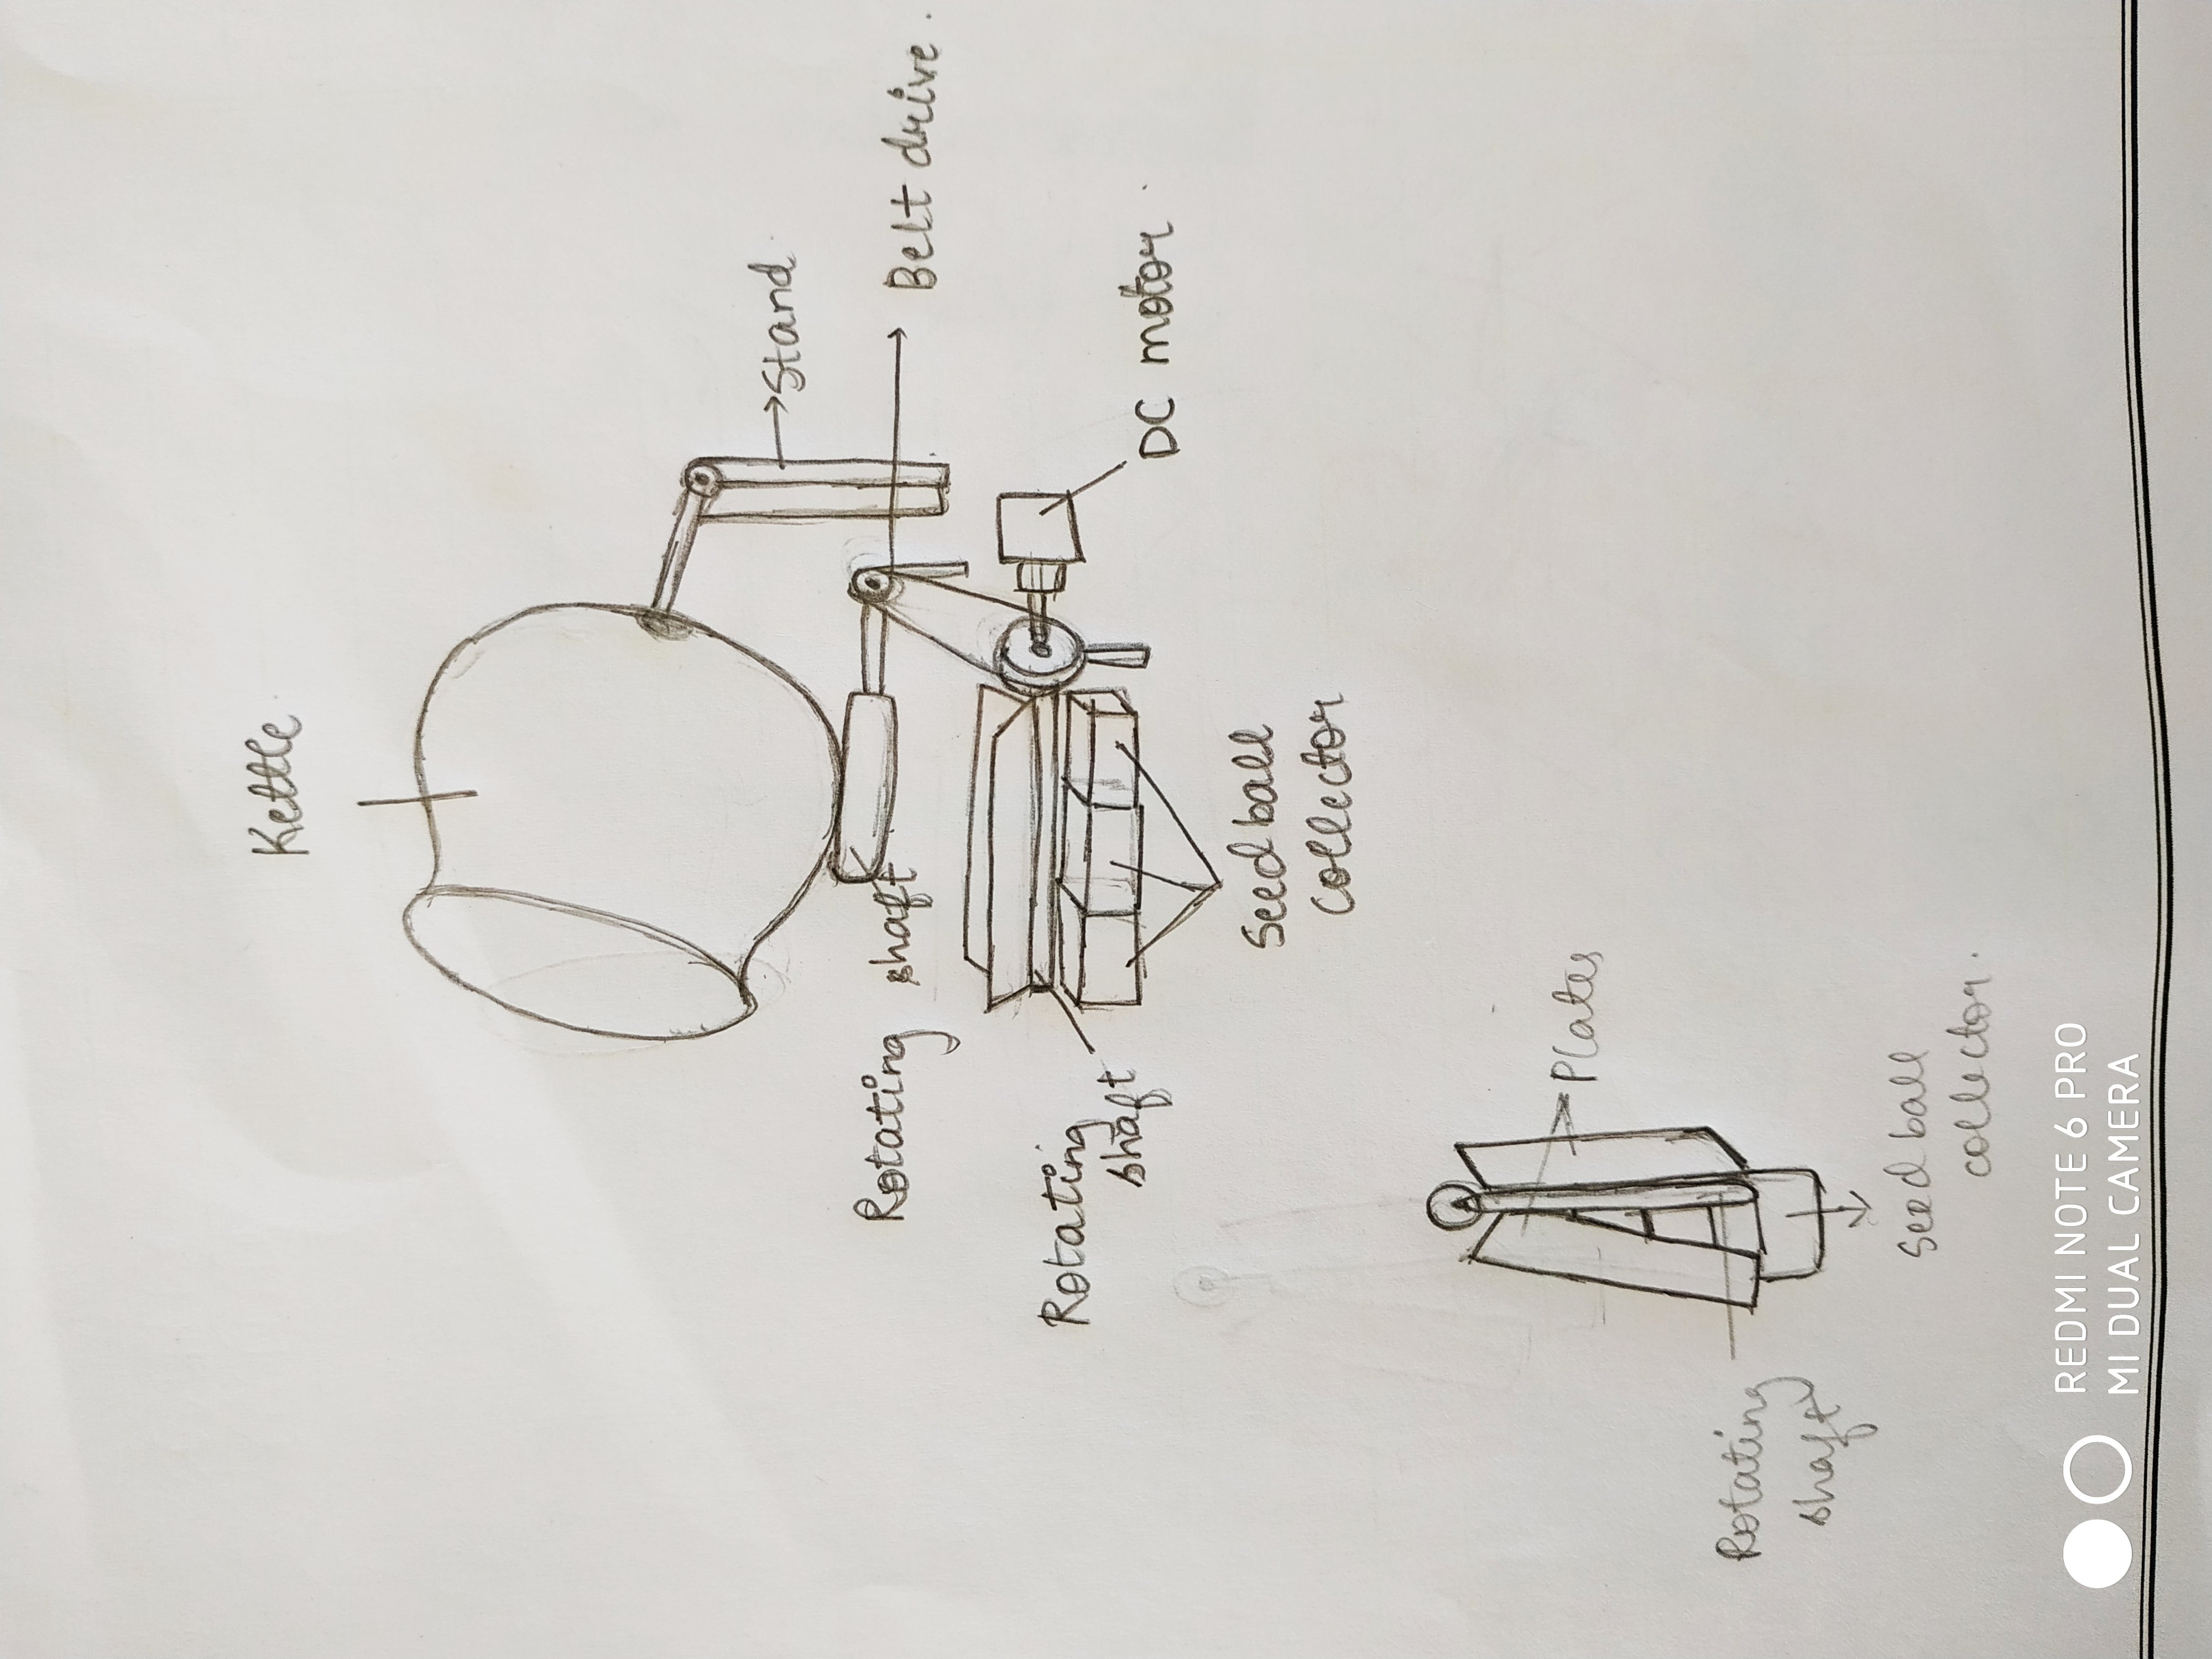 Kettle
Stand
Rotating shaft
Belt drive.
Rotating
shaft
DC motor
Seed ball
collector
Plates
Rotating
shaft
Seed ball
collector.
REDMI NOTE 6 PRO
MI DUAL CAMERA